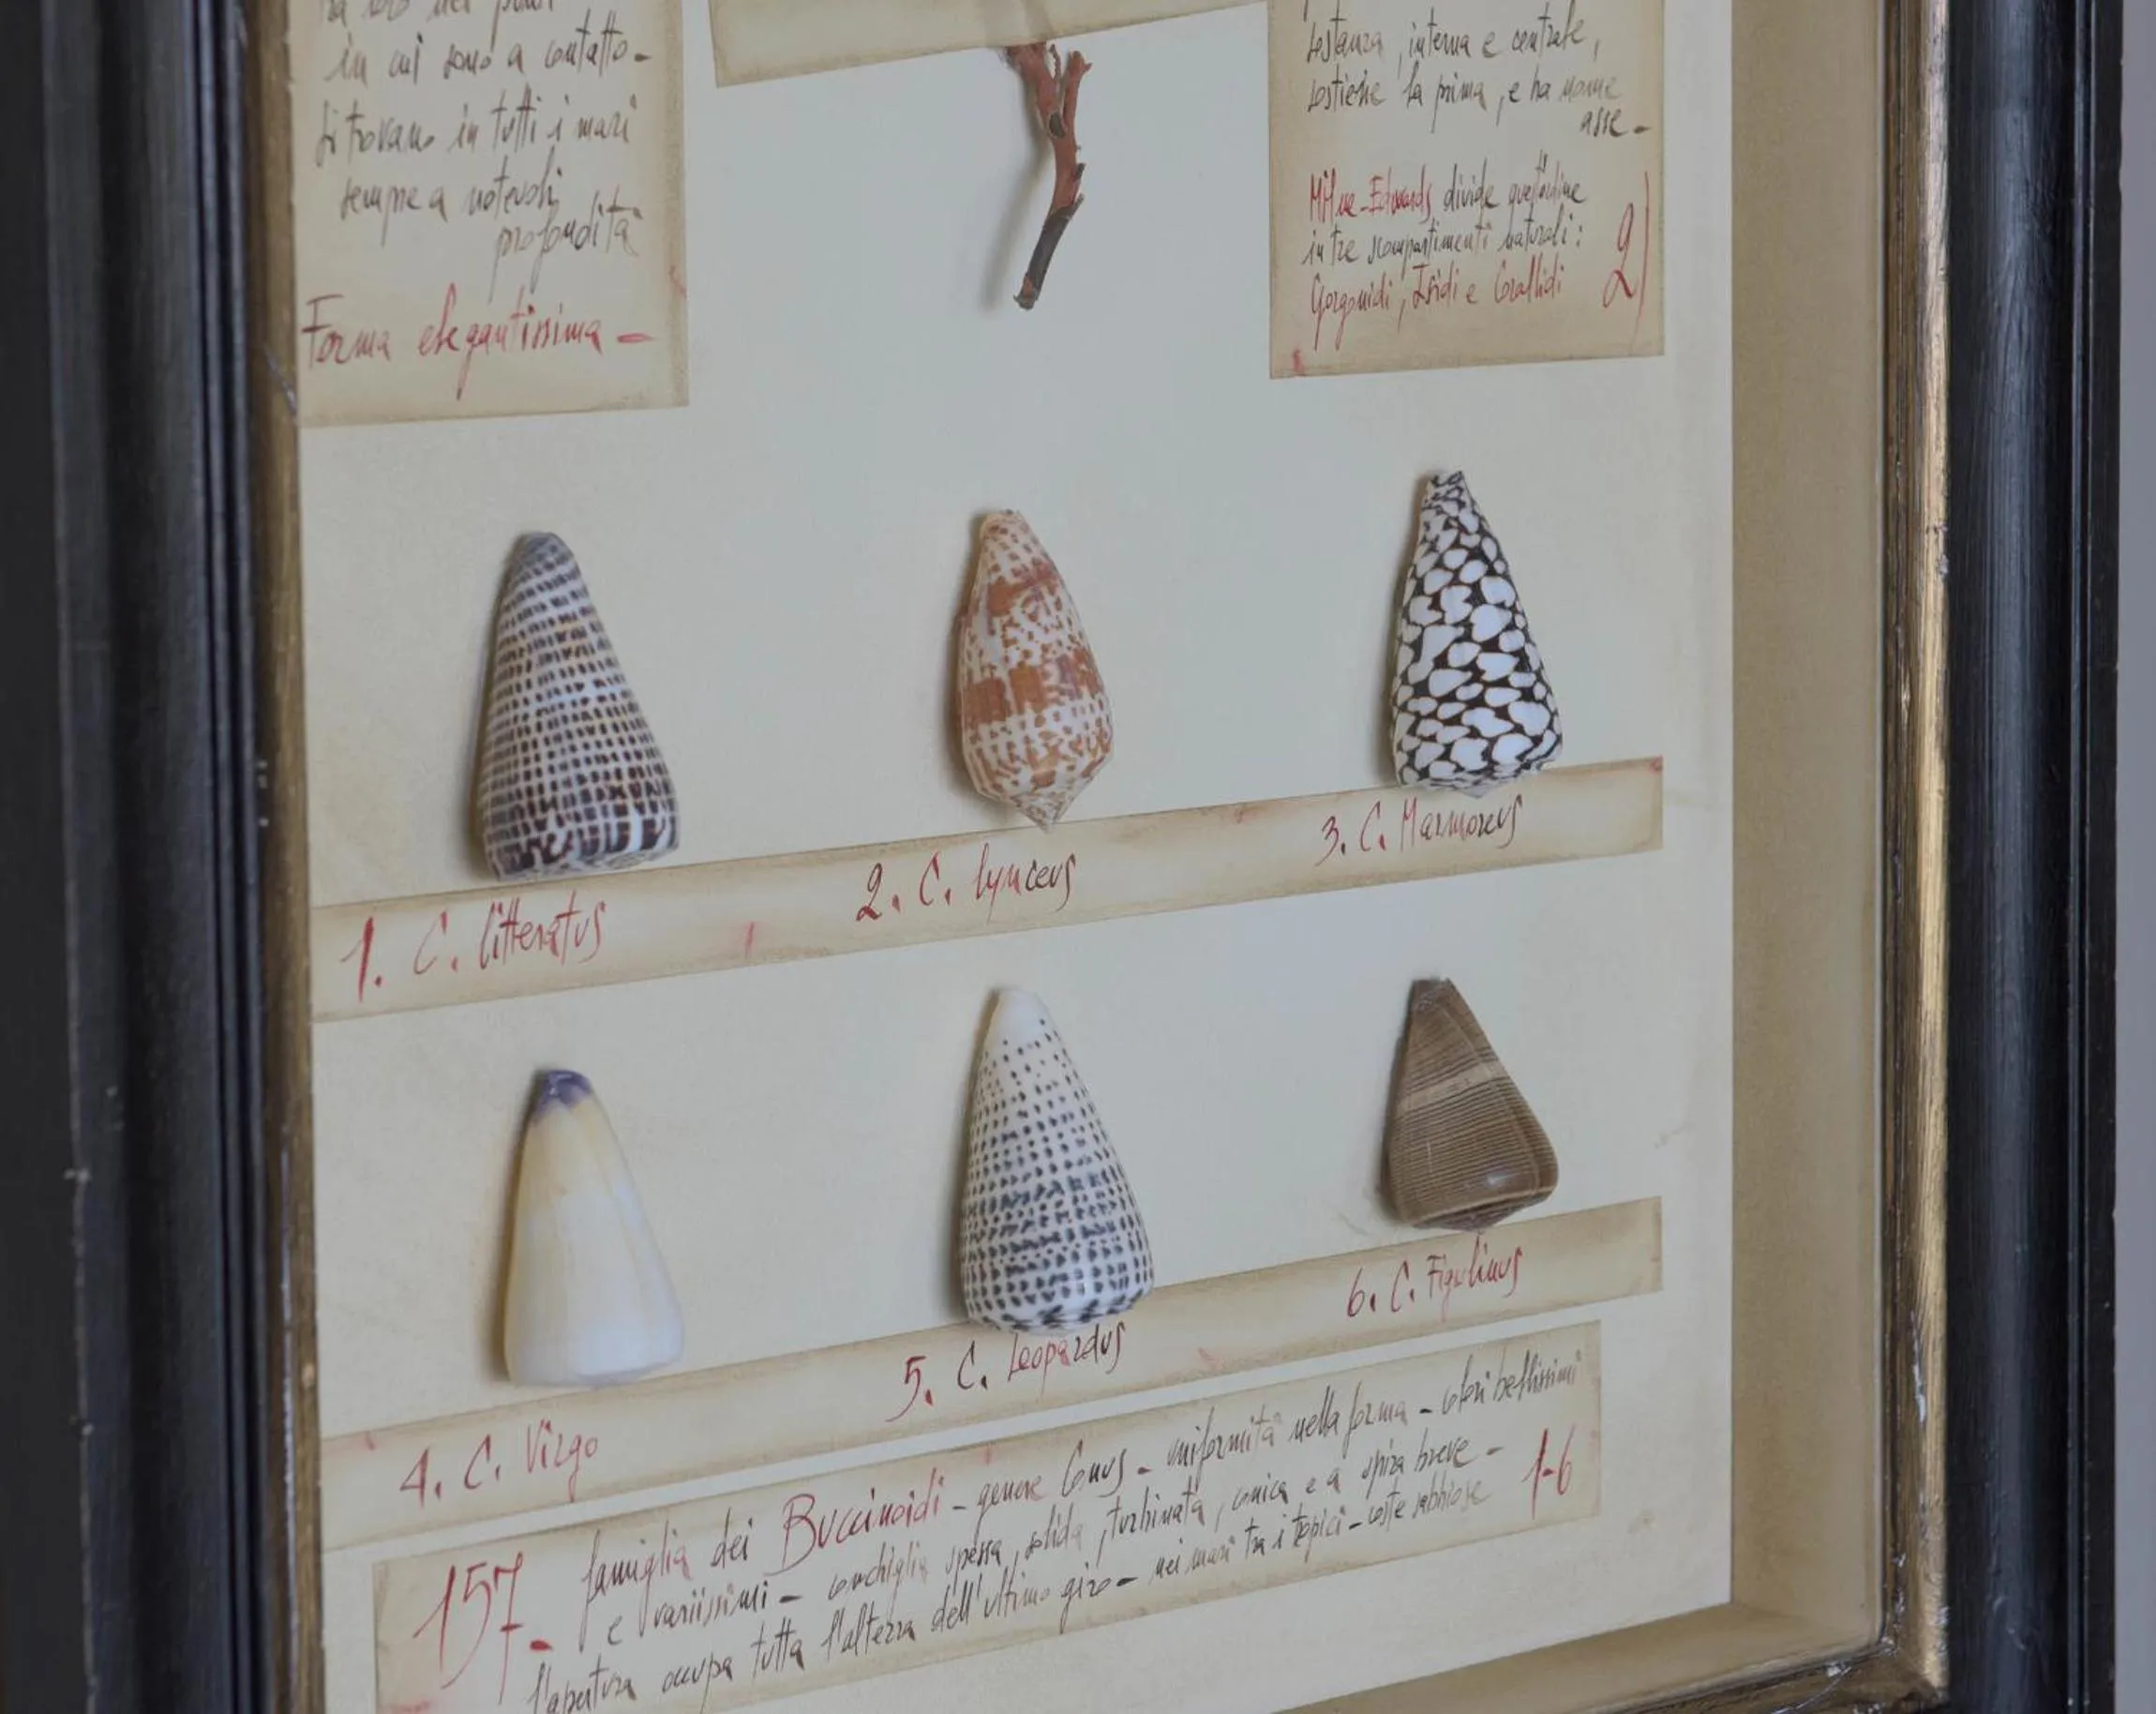 in cui sono a contatto -
Si trovano in tutti i mari
sempre a notevoli
profondità
Forma elegantissima -
sostanza, interna e centrale,
sostiene la prima, e ha nome
asse -
Milne-Edwards divide quest'ordine
in tre scompartimenti naturali:
Gorgonidi, Isidi e Corallidi
2)
1. C. litteratus
2. C. lynceus
3. C. Marmoreus
4. C. Virgo
5. C. Leopardus
6. C. Figulinus
157. famiglia dei Buccinoidi - genere Conus - uniformità nella forma - colori bellissimi
e variissimi - conchiglia spessa, solida, turbinata, conica e a spira breve -
l'apertura occupa tutta l'altezza dell'ultimo giro - nei mari tra i tropici - coste sabbiose
1-6